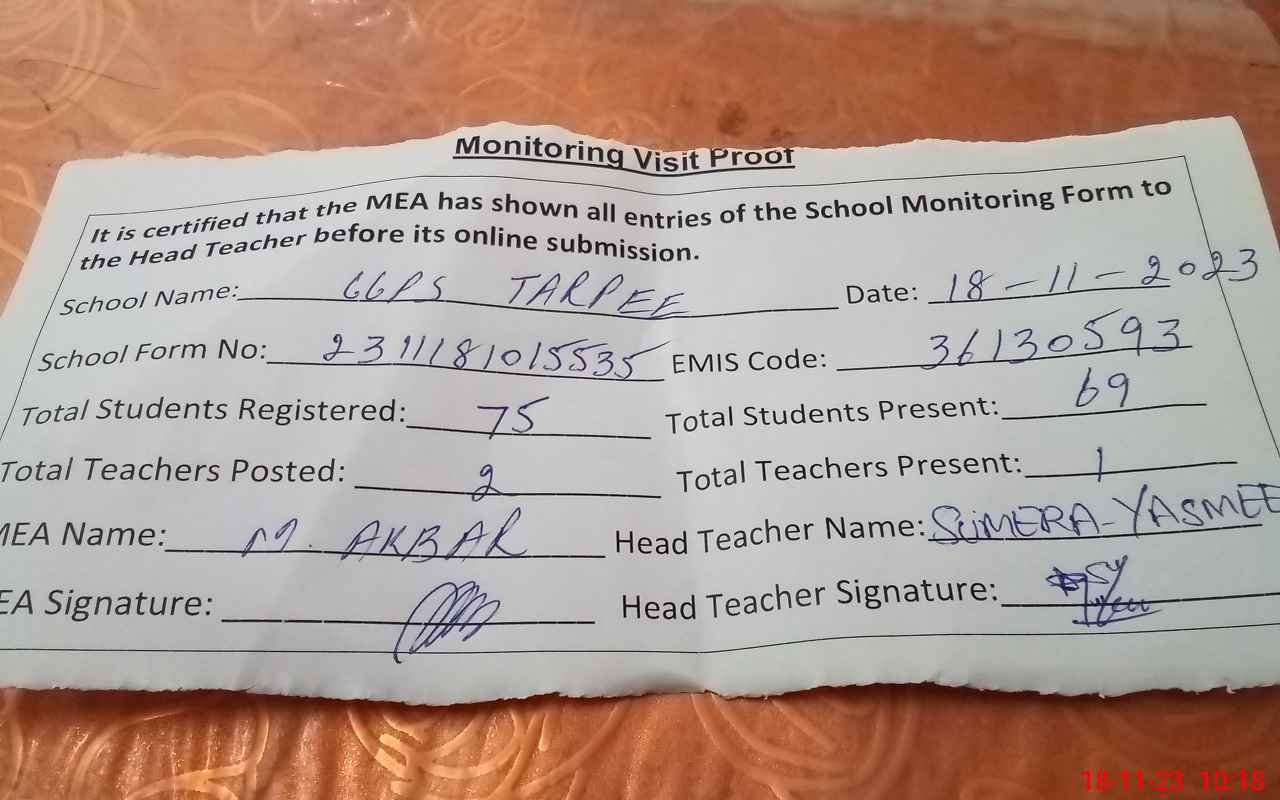 Monitoring Visit Proof
It is certified that the MEA has shown all entries of the School Monitoring Form to
the Head Teacher before its online submission.
School Name: GGPS TARPEE Date: 18-11-2023
School Form No: 2311181015535 EMIS Code: 36130593
Total Students Registered: 75 Total Students Present: 69
Total Teachers Posted: 2 Total Teachers Present: 1
MEA Name: M. AKBAR Head Teacher Name: SUMERA-YASMEE
EA Signature: Head Teacher Signature:
18-11-23 10:18